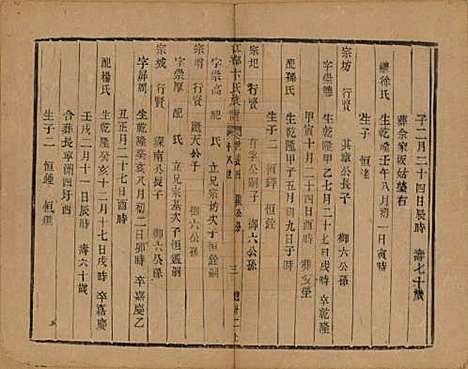 子二月二十四日辰時　壽七十歲
葬佘家坂姑墓右
繼徐氏　生乾隆壬午八月初一日寅時
生子一　恒渚
宗坊　行賢　其章公長子　御六公孫
字崇德　生乾隆甲乙七月二十七日戌時　卒乾隆
甲寅十月二十日戌時　葬
配孫氏　生乾隆甲子五月初九日子時
生子二　恒鐸　恒銓
宗圯　行賢　公嗣子　御六公孫
江都卞氏族譜
宗　行賢　公子　御六公孫
字崇高　配　氏　立兄宗基次子恒　嗣
字崇厚　配　氏　立兄宗坊次子恒銓嗣
宗城　行賢　公長子　御六公孫
字屏周　生乾隆癸亥八月初二日卯時　卒嘉慶乙
丑正月二十七日酉時
配楊氏　生乾隆癸亥十二月十七日戌時　卒嘉慶
壬戌二月十一日辰時　壽六十歲
合葬長寧湖四圩西
生子二　恒鍾　恒